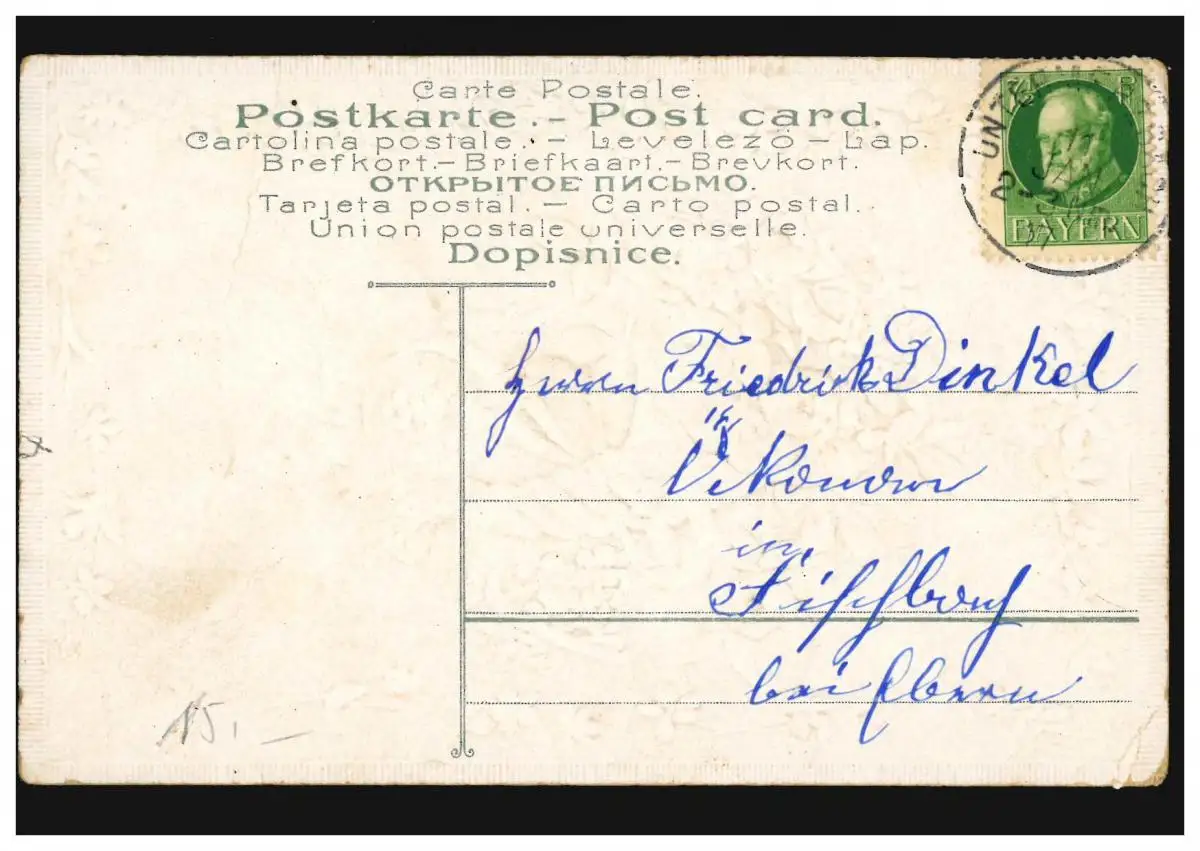 Carte Postale.
Postkarte.- Post card.
Cartolina postale. - Levelezö - Lap.
Brefkort.- Briefkaart.- Brevkort.
ОТКРЫТОЕ ПИСЬМО.
Tarjeta postal. - Carto postal.
Union postale universelle.
Dopisnice.
5
BAYERN
Herrn Friedrich Dinkel
Ökonom
in
Fischbach
bei Ebern
15.-